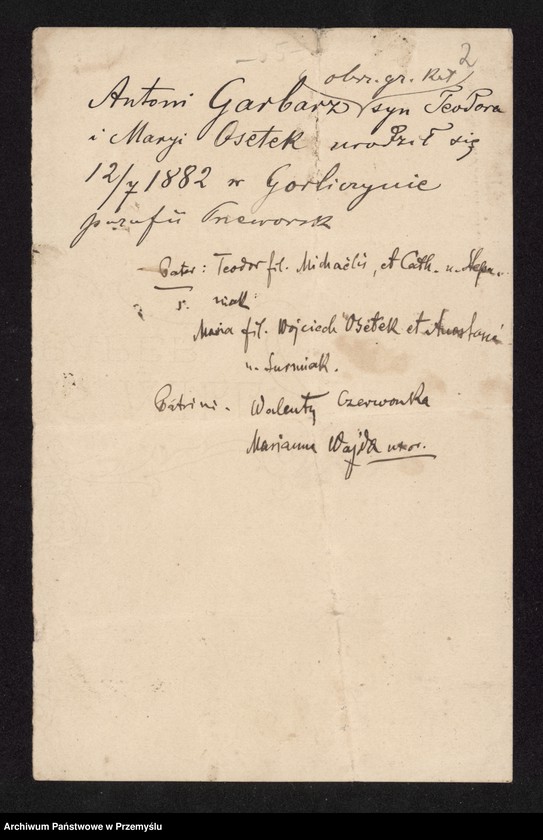 2
obrz. gr. kat
Antoni Garbarz syn Teodora
i Maryi Osetek urodził się
12/7 1882 w Gorliczynie
parafii Przeworsk
Pater: Teodor fil. Michaëlis, et Cath. n. Stepa-
niak
Maria fil. Wojciech Osetek et Anastasi
n. Surmiak.
Patrini - Walenty Czerwonka
Marianna Wajda uxor.
Archiwum Państwowe w Przemyślu